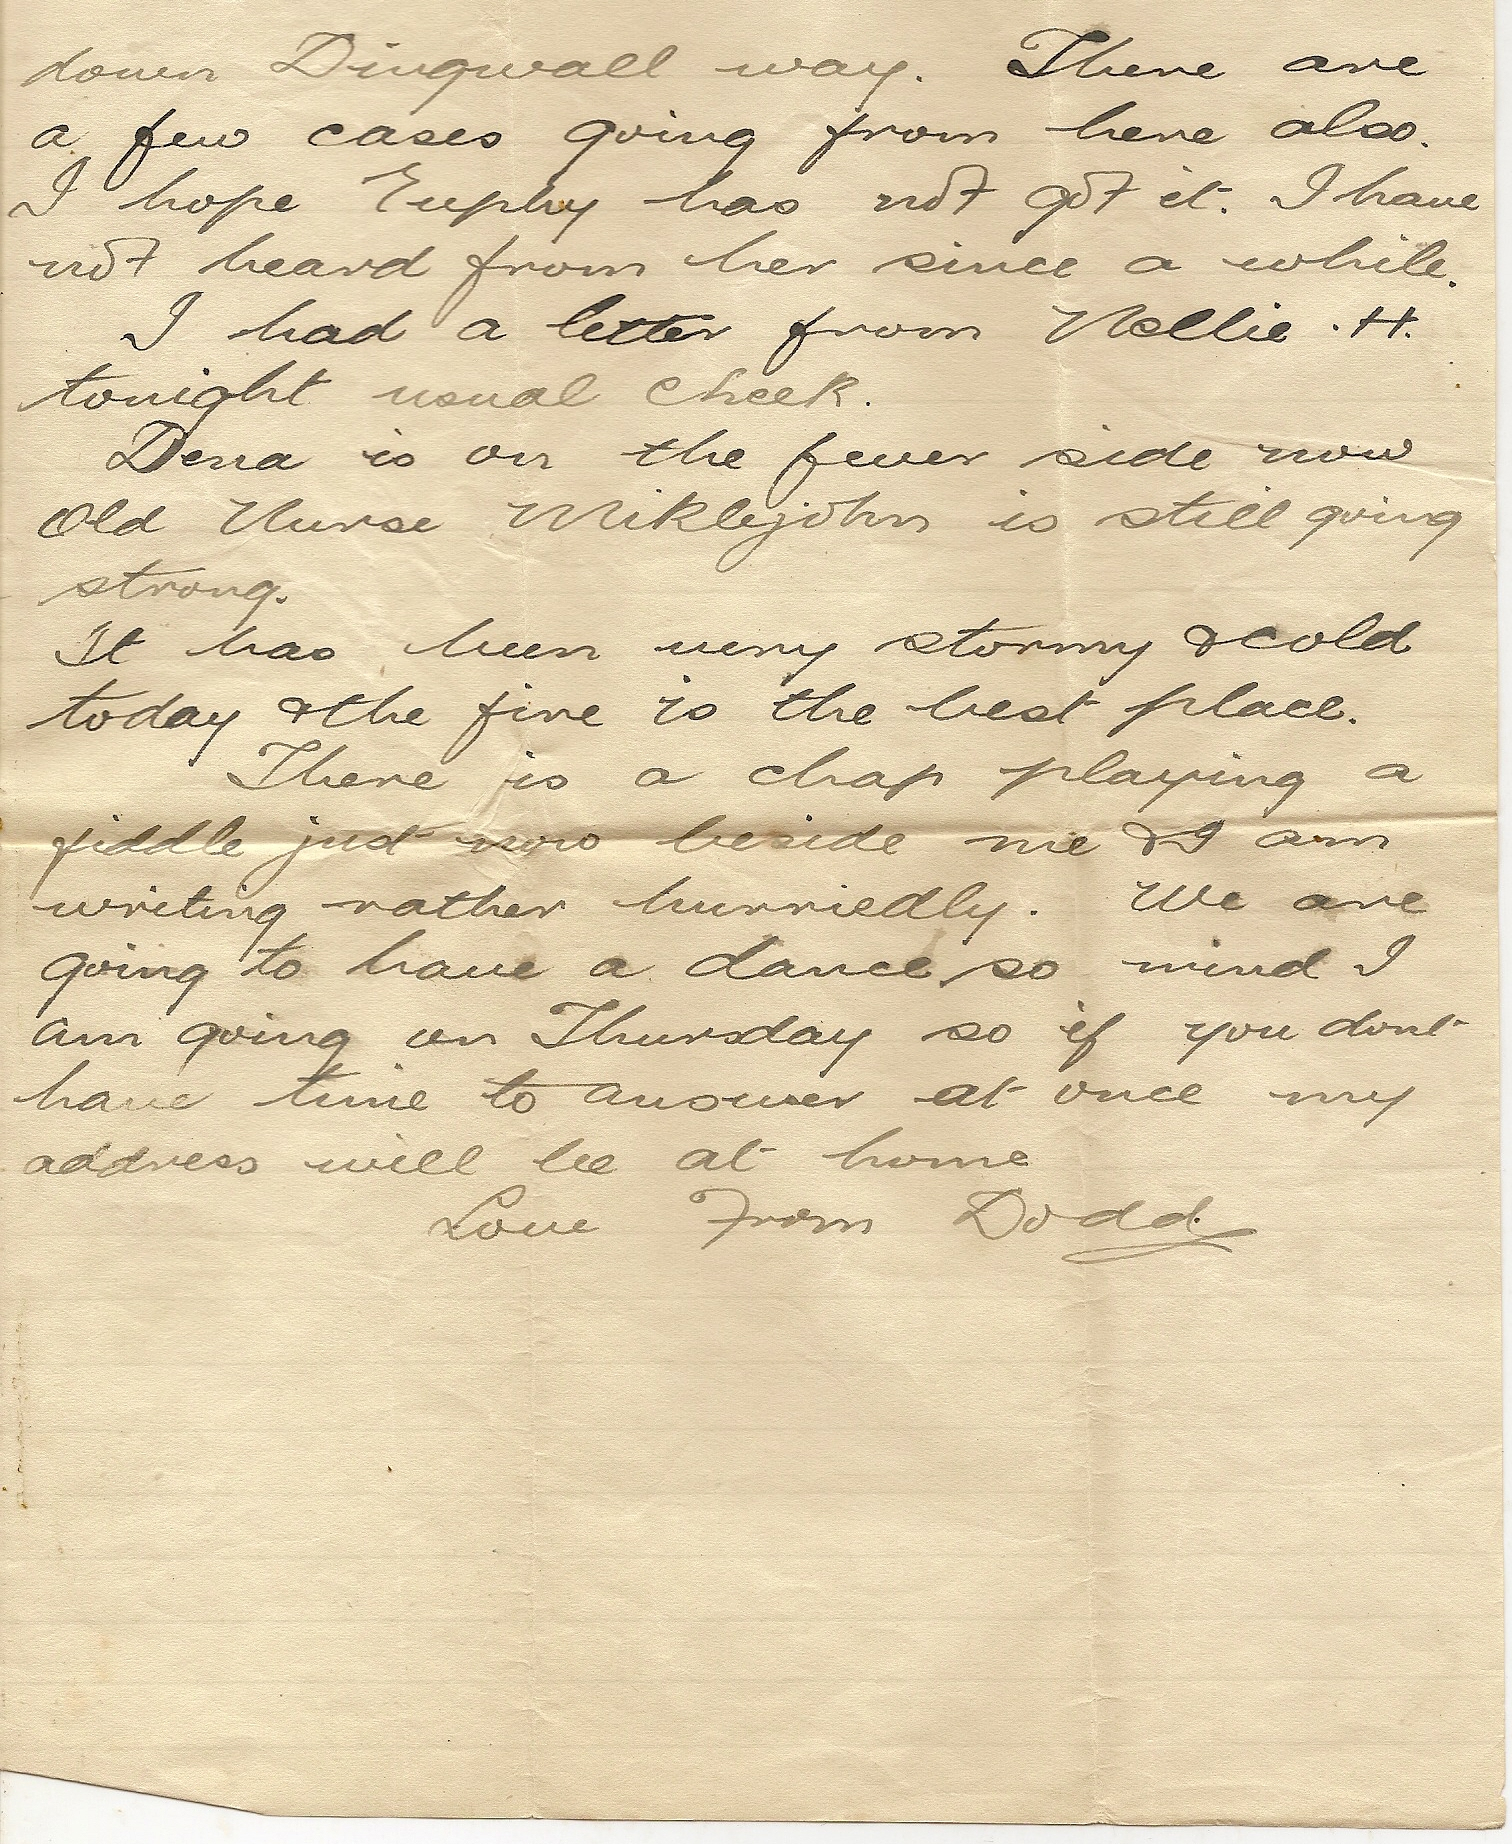 down Dingwall way. There are
a few cases going from here also.
I hope Euphy has not got it. I have
not heard from her since a while.
I had a letter from Nellie .H.
tonight usual cheek.
Dena is on the fever side now
Old Nurse Miklejohn is still going
strong.
It has been very stormy & cold
today & the fire is the best place.
There is a chap playing a
fiddle just now beside me & I am
writing rather hurriedly. We are
going to have a dance so mind I
am going on Thursday so if you dont
have time to answer at once my
address will be at home
Love From Dodd.